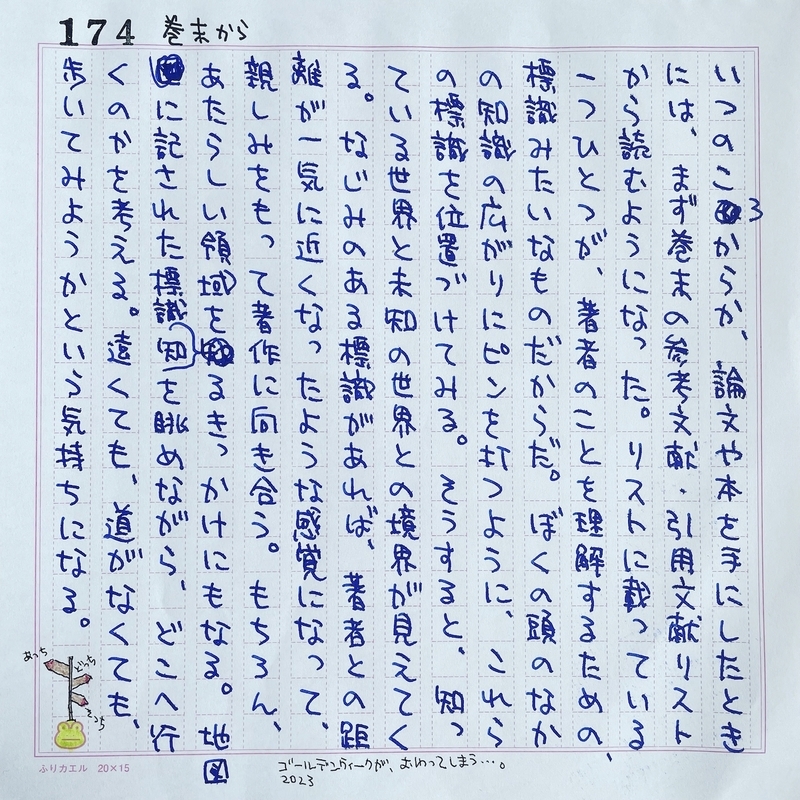 174 巻末から
いつのころからか、論文や本を手にしたとき
には、まず巻末の参考文献・引用文献リスト
から読むようになった。リストに載っている
一つひとつが、著者のことを理解するための、
標識みたいなものだからだ。ぼくの頭のなか
の知識の広がりにピンを打つように、これら
の標識を位置づけてみる。そうすると、知っ
ている世界と未知の世界との境界が見えてく
る。なじみのある標識があれば、著者との距
離が一気に近くなったような感覚になって、
親しみをもって著作に向き合う。もちろん、
あたらしい領域を知るきっかけにもなる。地図
に記された標識を眺めながら、どこへ行
くのかを考える。遠くても、道がなくても、
歩いてみようかという気持ちになる。
あっち
どっち
そっち
ふりカエル 20×15
ゴールデンウィークが、おわってしまう…。
2023